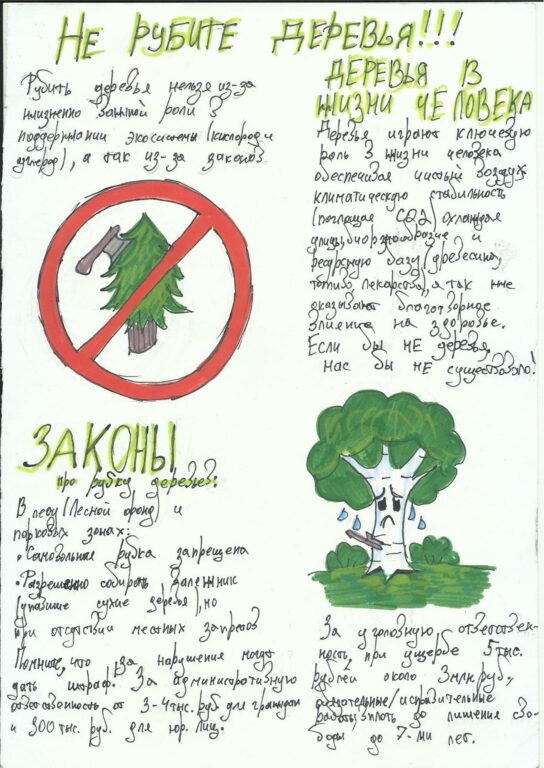 НЕ РУБИТЕ ДЕРЕВЬЯ!!!
Рубить деревья нельзя из-за
жизненно важной роли в
поддержании экосистемы (кислород и
углерод), а так из-за законов
ДЕРЕВЬЯ В
ЖИЗНИ ЧЕЛОВЕКА
Деревья играют ключевую
роль в жизни человека
обеспечивая чистый воздух
климатическую стабильность
(поглощая CO2, охлаждая
улицы, биоразнообразие и
ресурсную базу (древесина,
топливо, лекарство), а так же
оказывают благотворное
влияние на здоровье.
Если бы НЕ деревья,
нас бы НЕ существовало!
ЗАКОНЫ
про рубку деревьев:
В лесу (Лесной фонд) и
парковых зонах:
• Самовольная рубка запрещена
• Разрешено собирать валежник
(упавшие сухие деревья), но
при отсутствии местных запретов
Помните, что за нарушение могут
дать штраф. За административную
ответственность от 3-4 тыс. руб для граждан
и 300 тыс. руб. для юр. лиц.
За уголовную ответствен-
ность, при ущербе 5 тыс.
рублей около 3 млн руб.,
/исправительные
работы, вплоть до лишения сво-
боды до 7-ми лет.